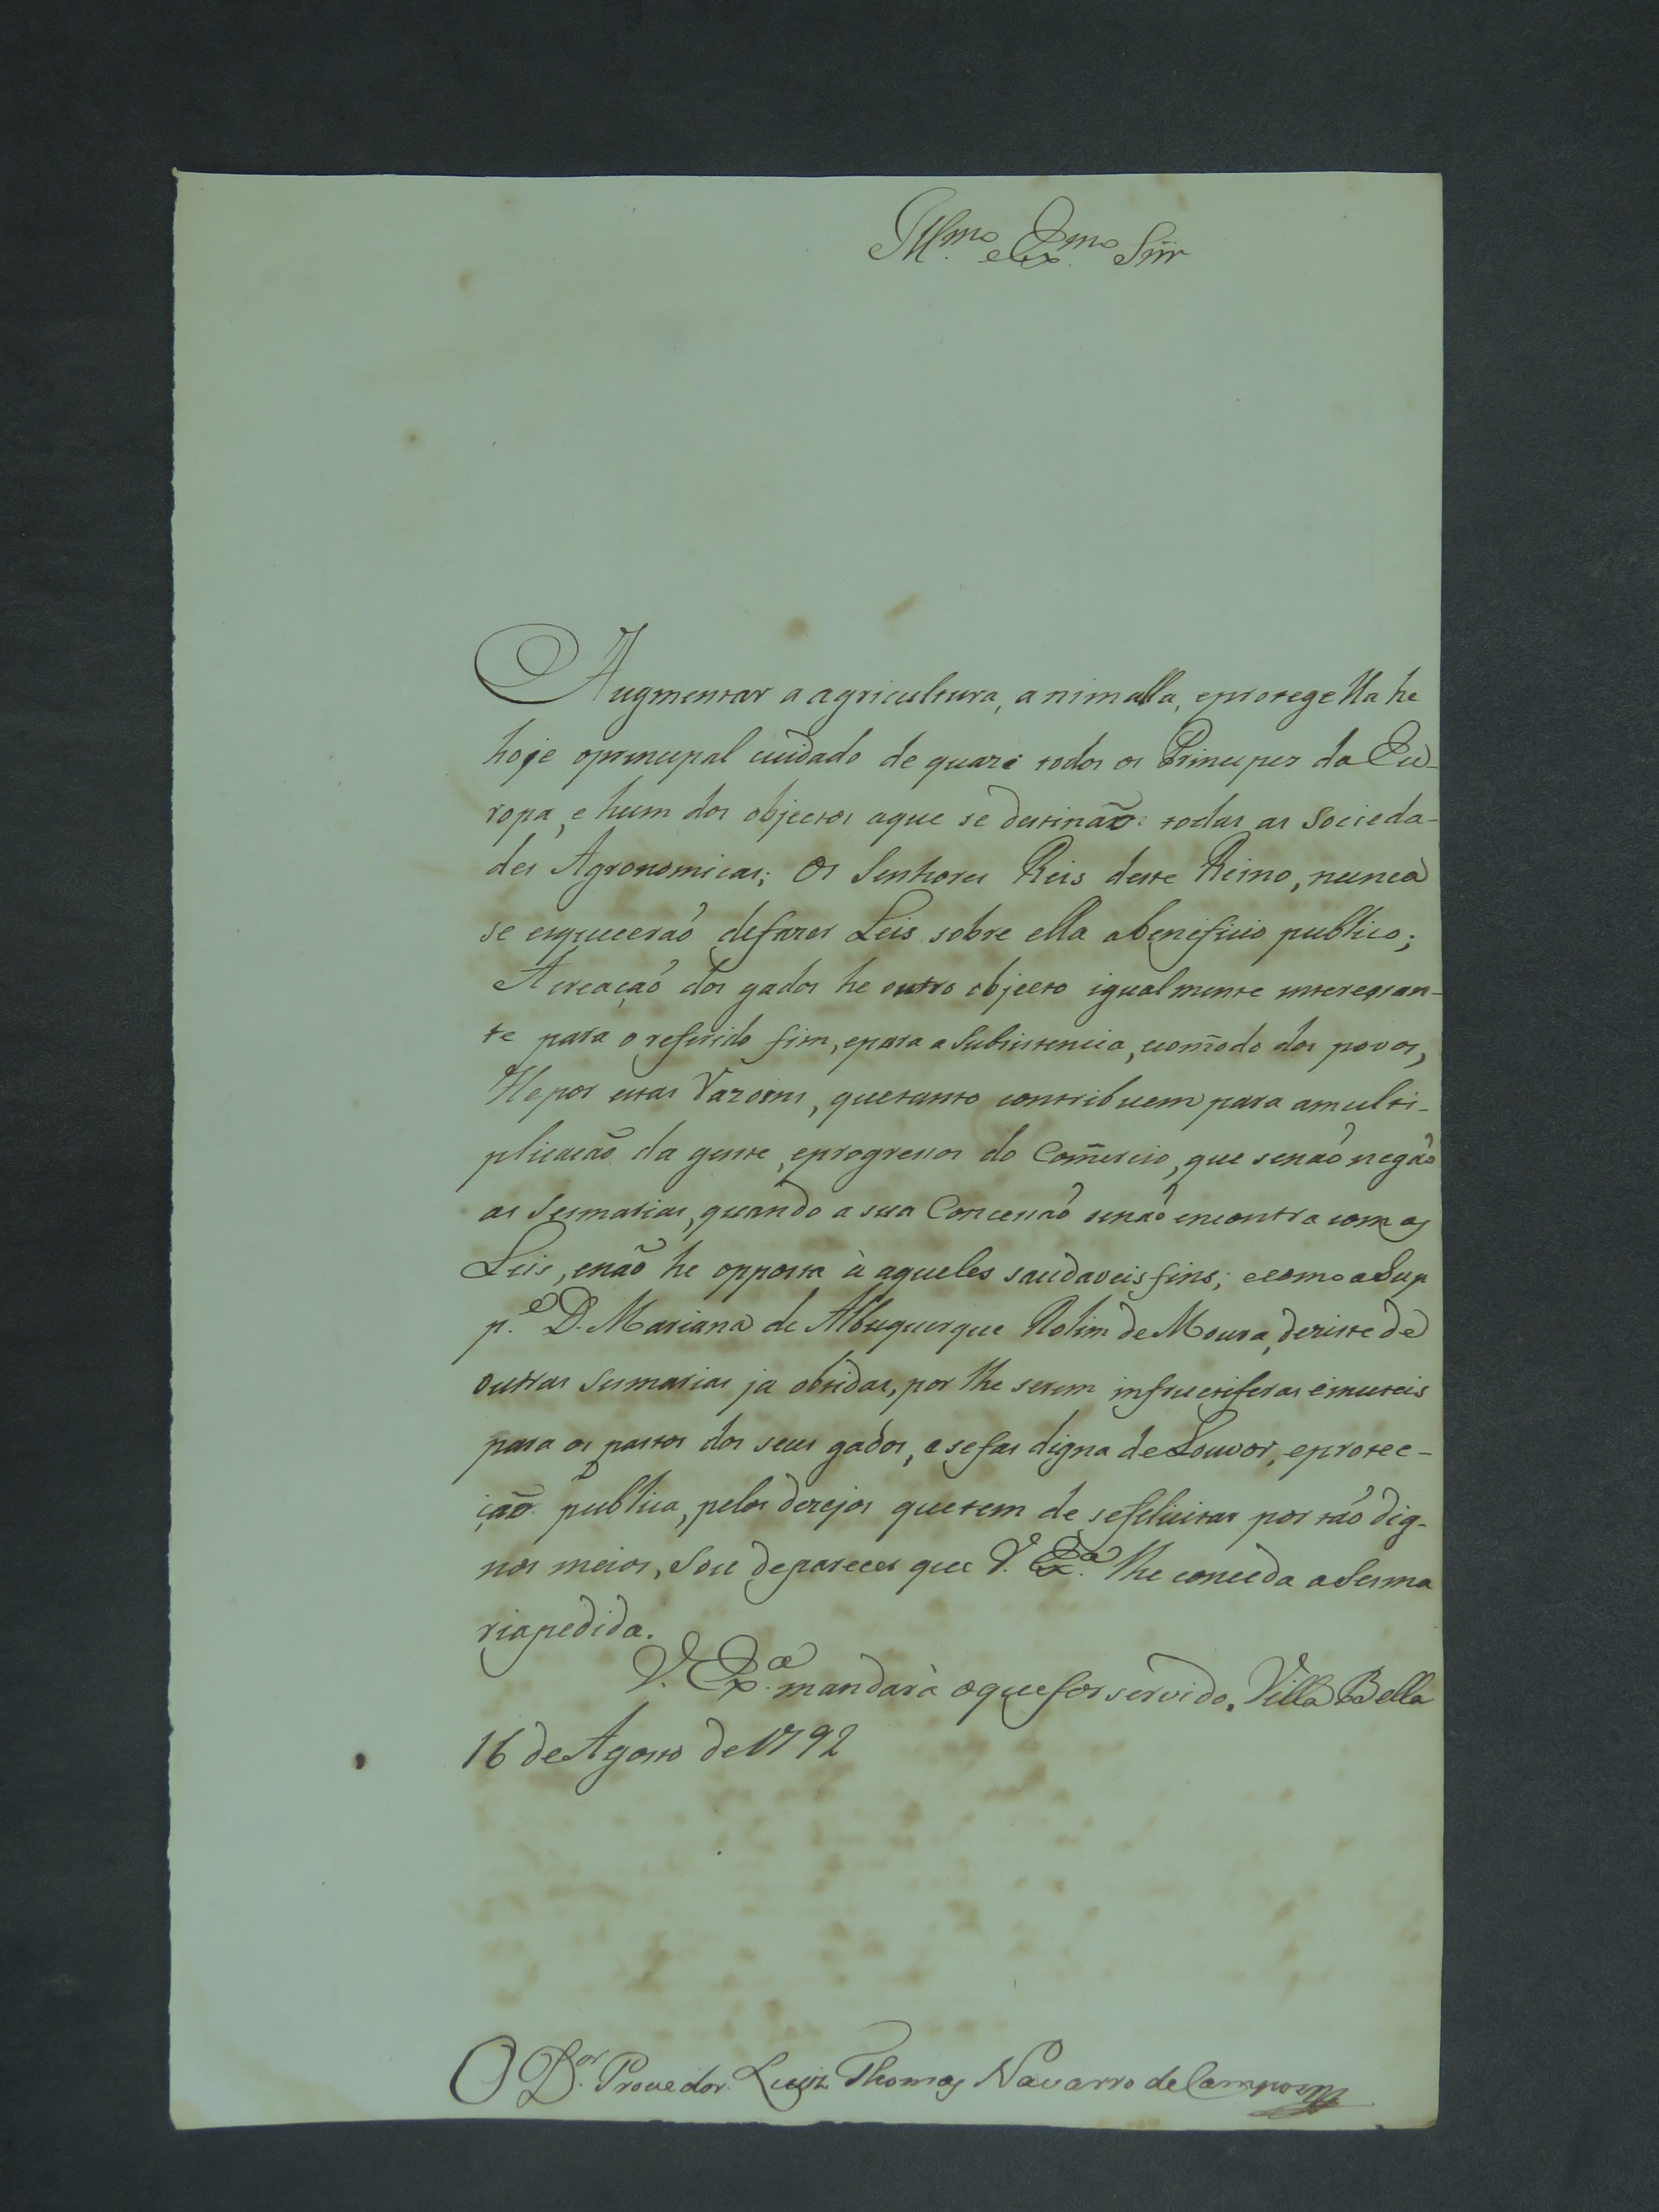 Ill.mo e Ex.mo Sñr
Augmentar a agricultura, animalla, eprotegella he
hoje oprincipal cuidado de quazi todos os Principes da Eu-
ropa, e hum dos objectos aque se destinaõ todas as Socieda-
des Agronomicas; Os Senhores Reis deste Reino, nunca
se esqueceraõ defazer Leis sobre ella abeneficio publico;
A creaçaõ dos gados he outro objecto igualmente interessan-
te para o referido fim, epara a Subsistencia, ecom̃odo dos povos,
He por estas razoens, quetanto contribuem para amulti-
plicacaõ da gente, eprogressos do Com̃ercio, que senaõ negaõ
as Sesmarias, quando a sua Concessaõ senaõ encontra com as
Leis, enaõ he opposta à aqueles saudaveis fins; ecomo a Sup
p.e D. Mariana de Albuquerque Rolim de Moura, deziste de
outras Sesmarias ja obtidas, por lhe serem infructiferas e inuteis
para os pastos dos seus gados, e sefas digna de Louvor, eprotec-
çaõ publica, pelos dezejos quetem de sefelicitar por taõ dig-
nos meios, Sou deparecer que V. Ex.a lhe conceda a Sesma
ria pedida.
V. Ex.a mandarà oquefor servido. Villa Bella
16 de Agosto de 1792
O D.or Provedor Luiz Thomas Navarro de Campos